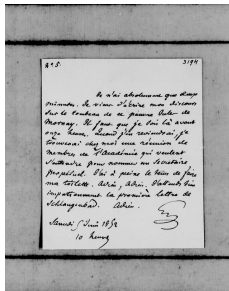 N° 5. 3194
Je n'ai absolument que deux
minutes. Je viens d'écrire mon discours
sur le tombeau de ce pauvre Vute de
Mornay. Il faut que je sois là avant
onze heures. Quand j'en reviendrai, je
trouverai chez moi une réunion de
membres de l'Académie qui veulent
s'entendre pour nommer un Secrétaire
perpétuel. J'ai à peine le tems de faire
ma toilette. Adieu, adieu. J'attends bien
impatiemment la première lettre de
Schlangenbad. Adieu.
Samedi 5 Juin 1852
10 heures